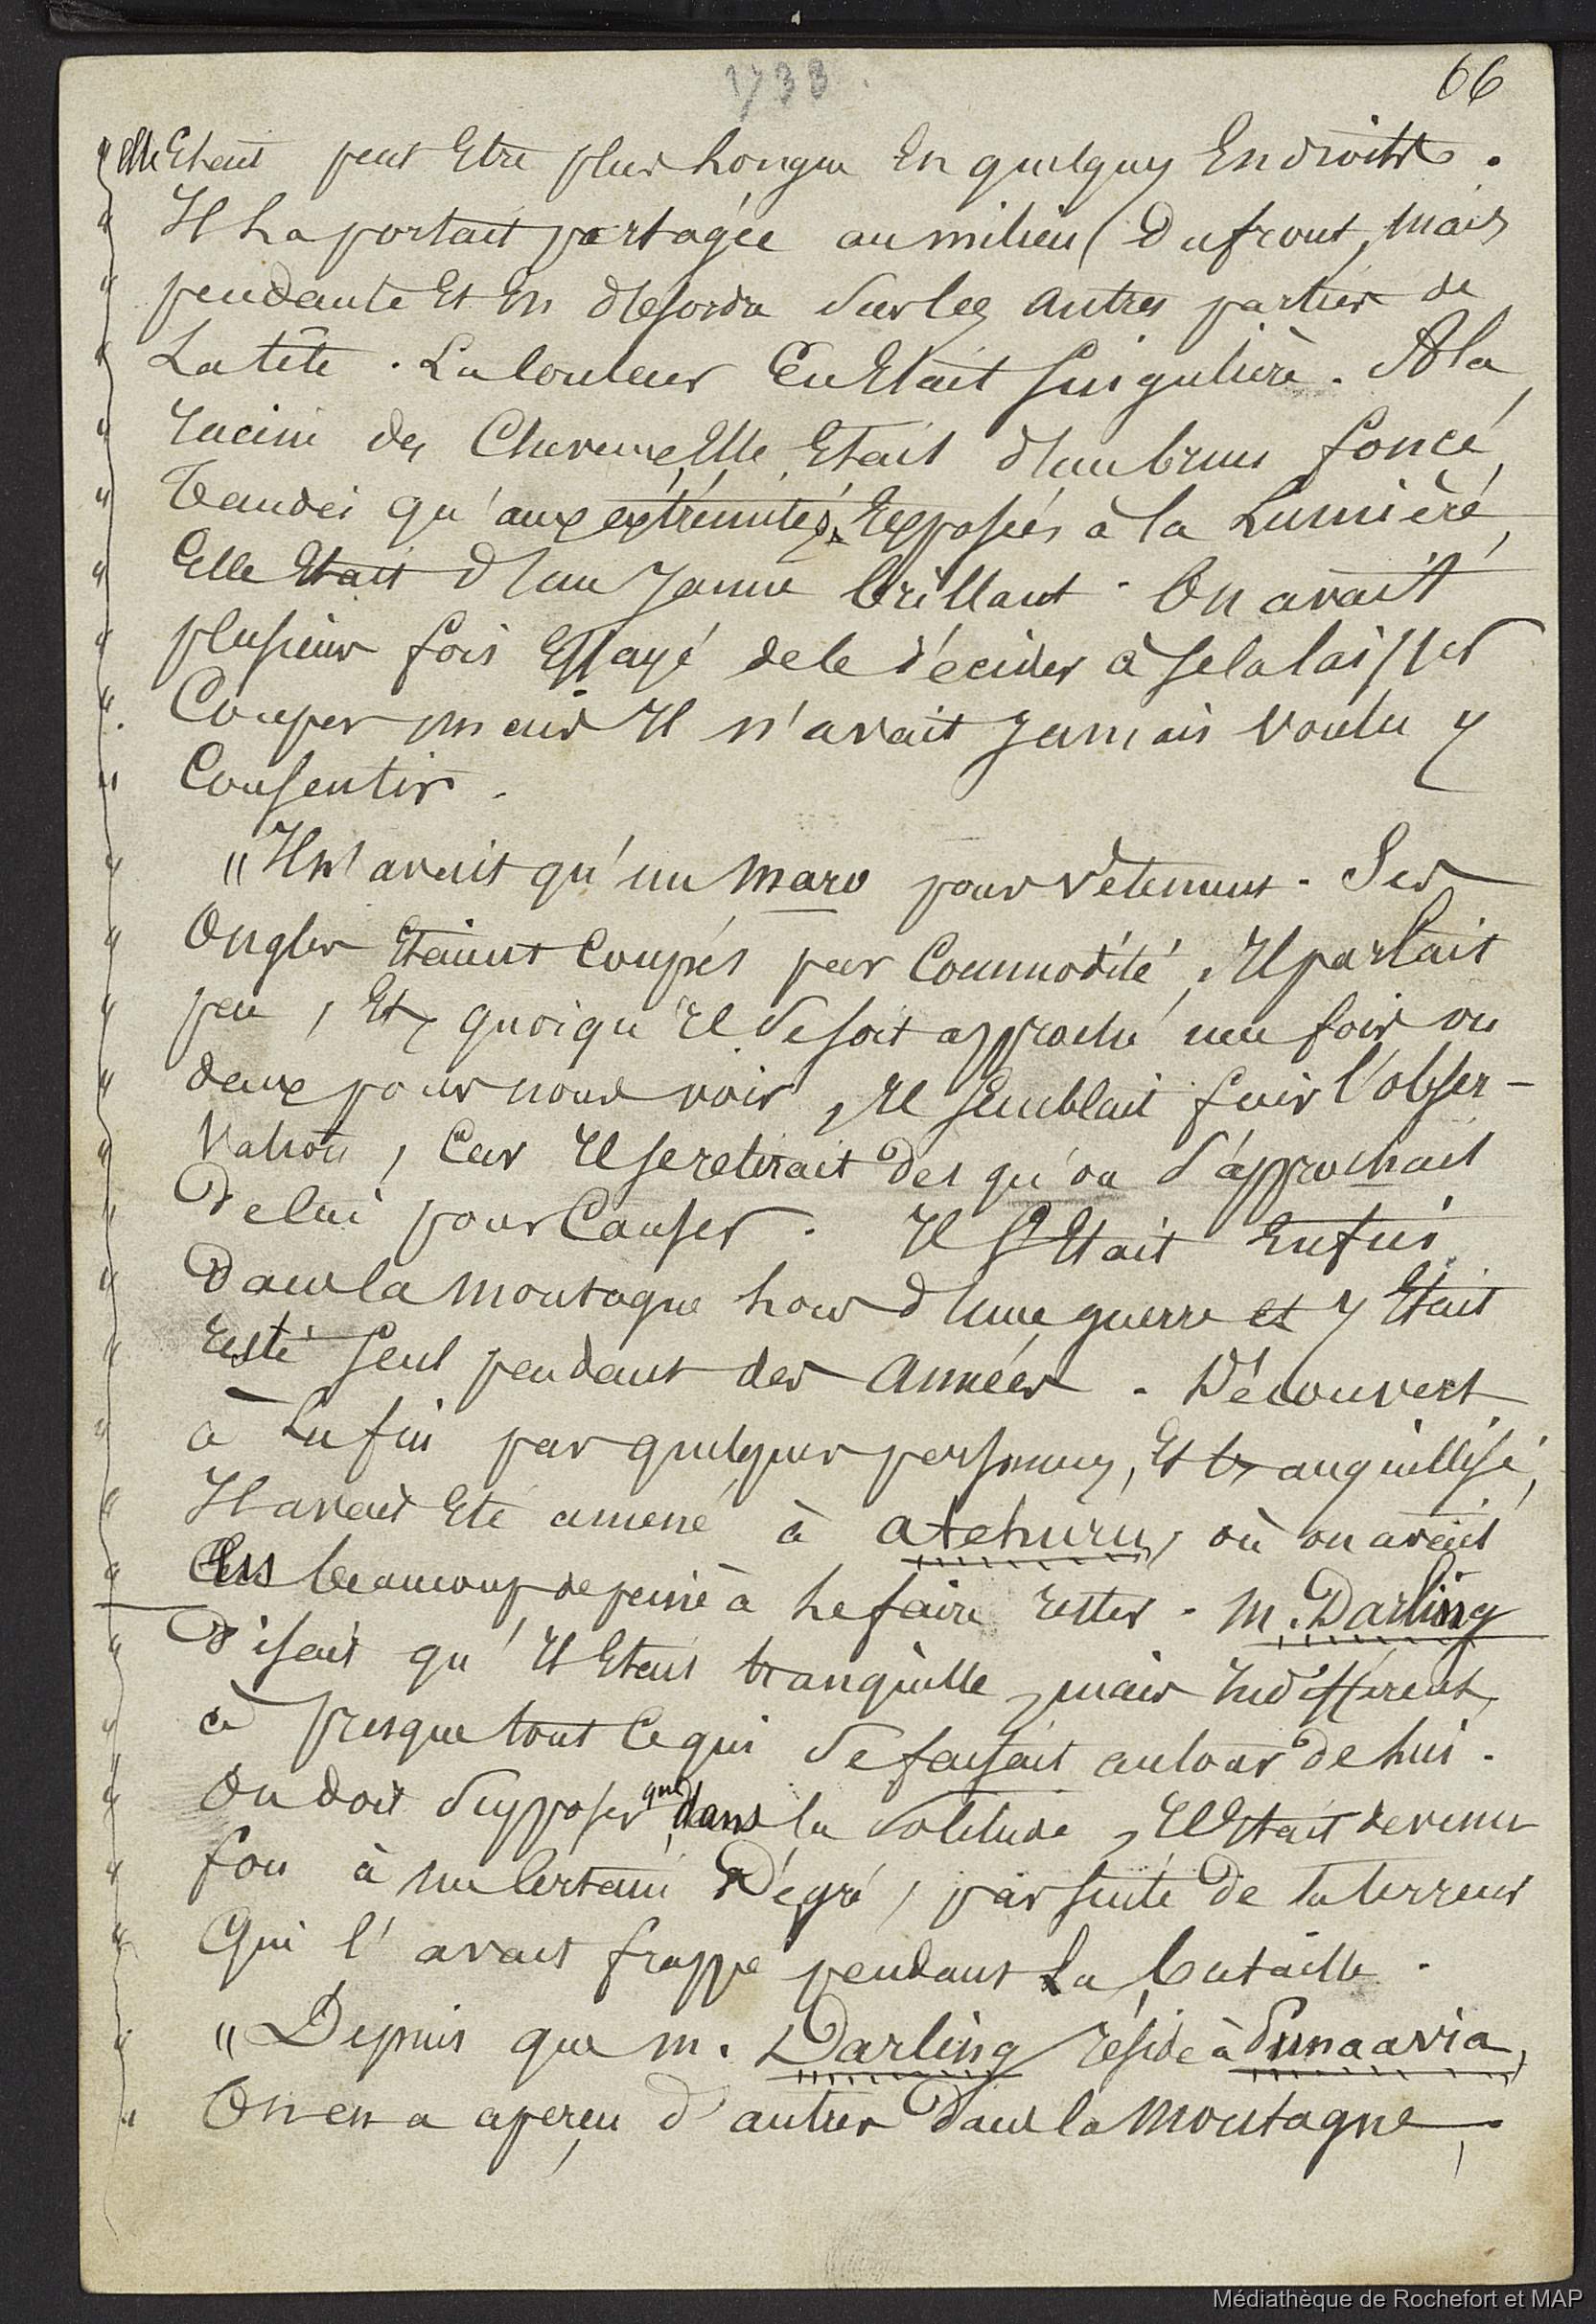 1738.
66
" elle Etait peut Etre plus Longue En quelques Endroits.
" Il La portait partagée au milieu (Du front, Mais
" pendante Et En désordre Sur les Autres parties de
" La tête. La Couleur En Etait Singulière. A la
" racine des Cheveux, Elle Etait d'un brun foncé,
" Tandis qu'aux extrémités, Exposées à la Lumière,
" Elle Etait d'un Jaune brillant. On avait
" plusieurs fois Essayé de le décider à se la laisser
" Couper mais Il n'avait Jamais Voulu y
" Consentir.
" "Il n'avait qu'un Maro pour Vêtement. Ses
" Ongles Etaient Coupés par Commodité, Il parlait
" peu, Et, quoiqu'Il se soit approché une fois ou
" deux pour nous voir, Il Semblait fuir l'obser-
" Vation, Car Il se retirait Dès qu'on s'approchait
" De lui pour Causer. Il S'Etait Enfui
" Dans la Montagne Lors d'une guerre et y Etait
" resté Seul pendant des Années. Découvert
" à La fin par quelques personnes, Et tranquillisé,
" Il avait Eté amené à atehuru, où on avait
" Eu beaucoup de peine à Le faire rester. M. Darling
" Disait qu'Il Etait tranquille, mais Indifférent,
" à Presque tout Ce qui se faisait autour de Lui.
" On doit Supposer que dans la Solitude, Il Etait devenu
" fou à un Certain Dégré, par suite de la terreur
" Qui l'avait frappé pendant La bataille.
" "Depuis que M. Darling réside à Punaavia,
" On en a aperçu d'autres Dans la Montagne,.
Médiathèque de Rochefort et MAP